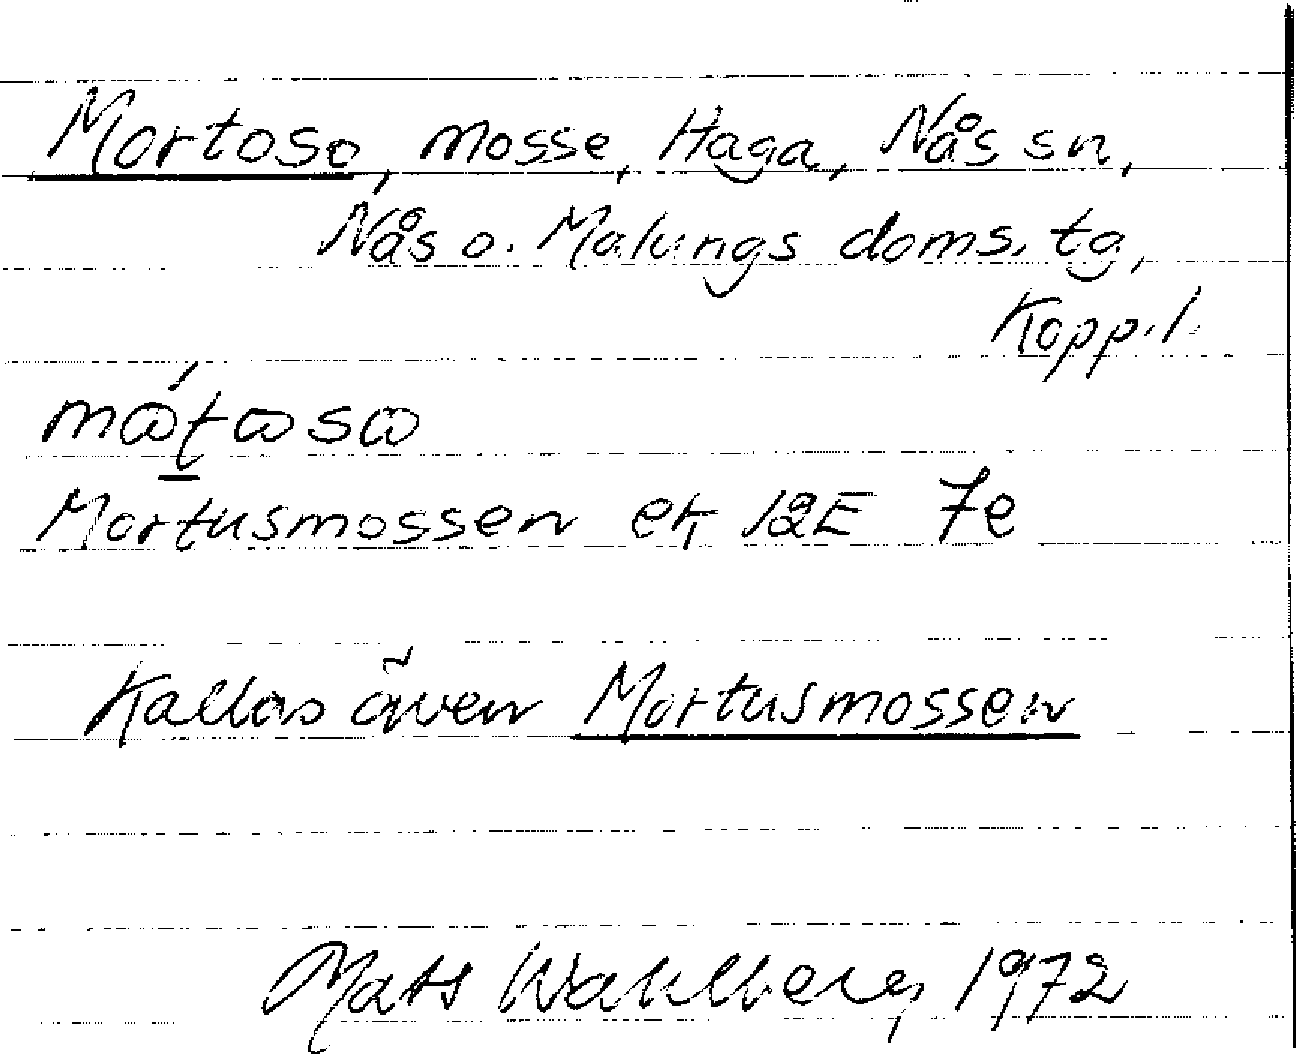 Mortoso, mosse, Haga, Nås sn,
Nås o. Malungs doms. tg,
Kopp. l.
Mortusmossen ek 12E 7e
Kallas även Mortusmossen
Mats Wahlberg 1972